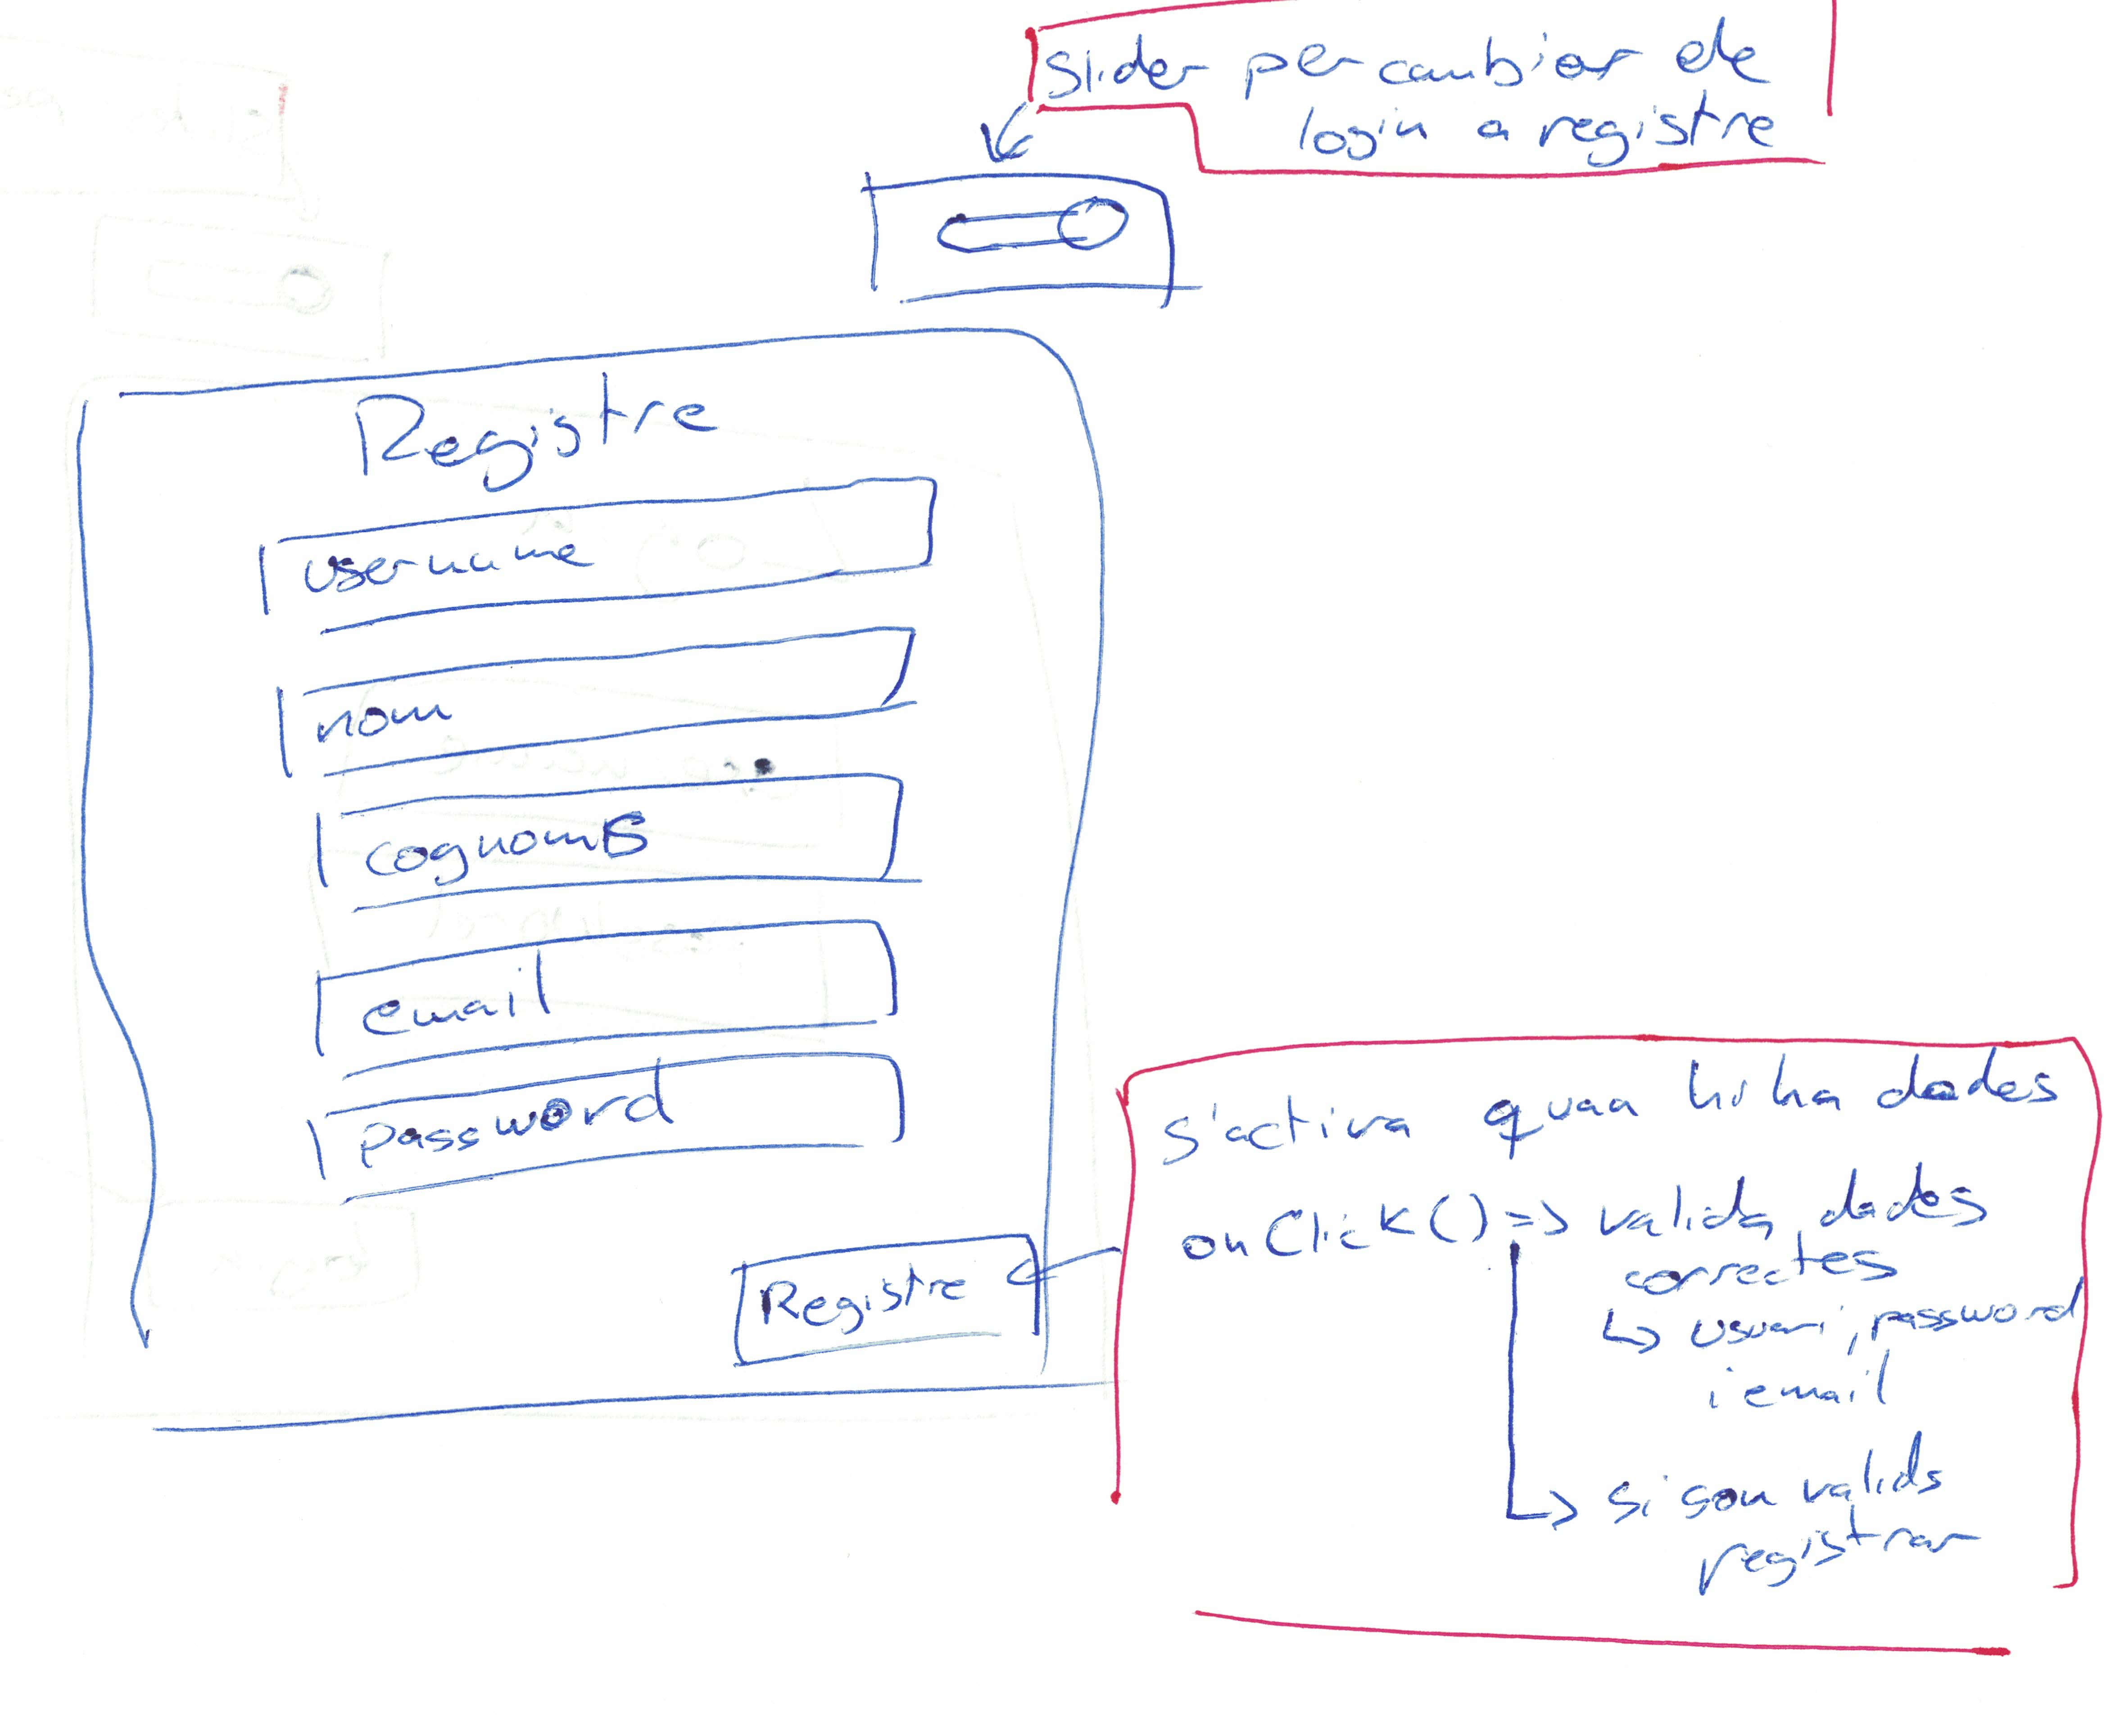 Slider per cambiar de
login a registre
Registre
username
nom
cognoms
email
password
Registre
s'activa quan hi ha dades
onClick() => valida dades
correctes
↳ usuari, password
i email
↳ si son valids
registrar